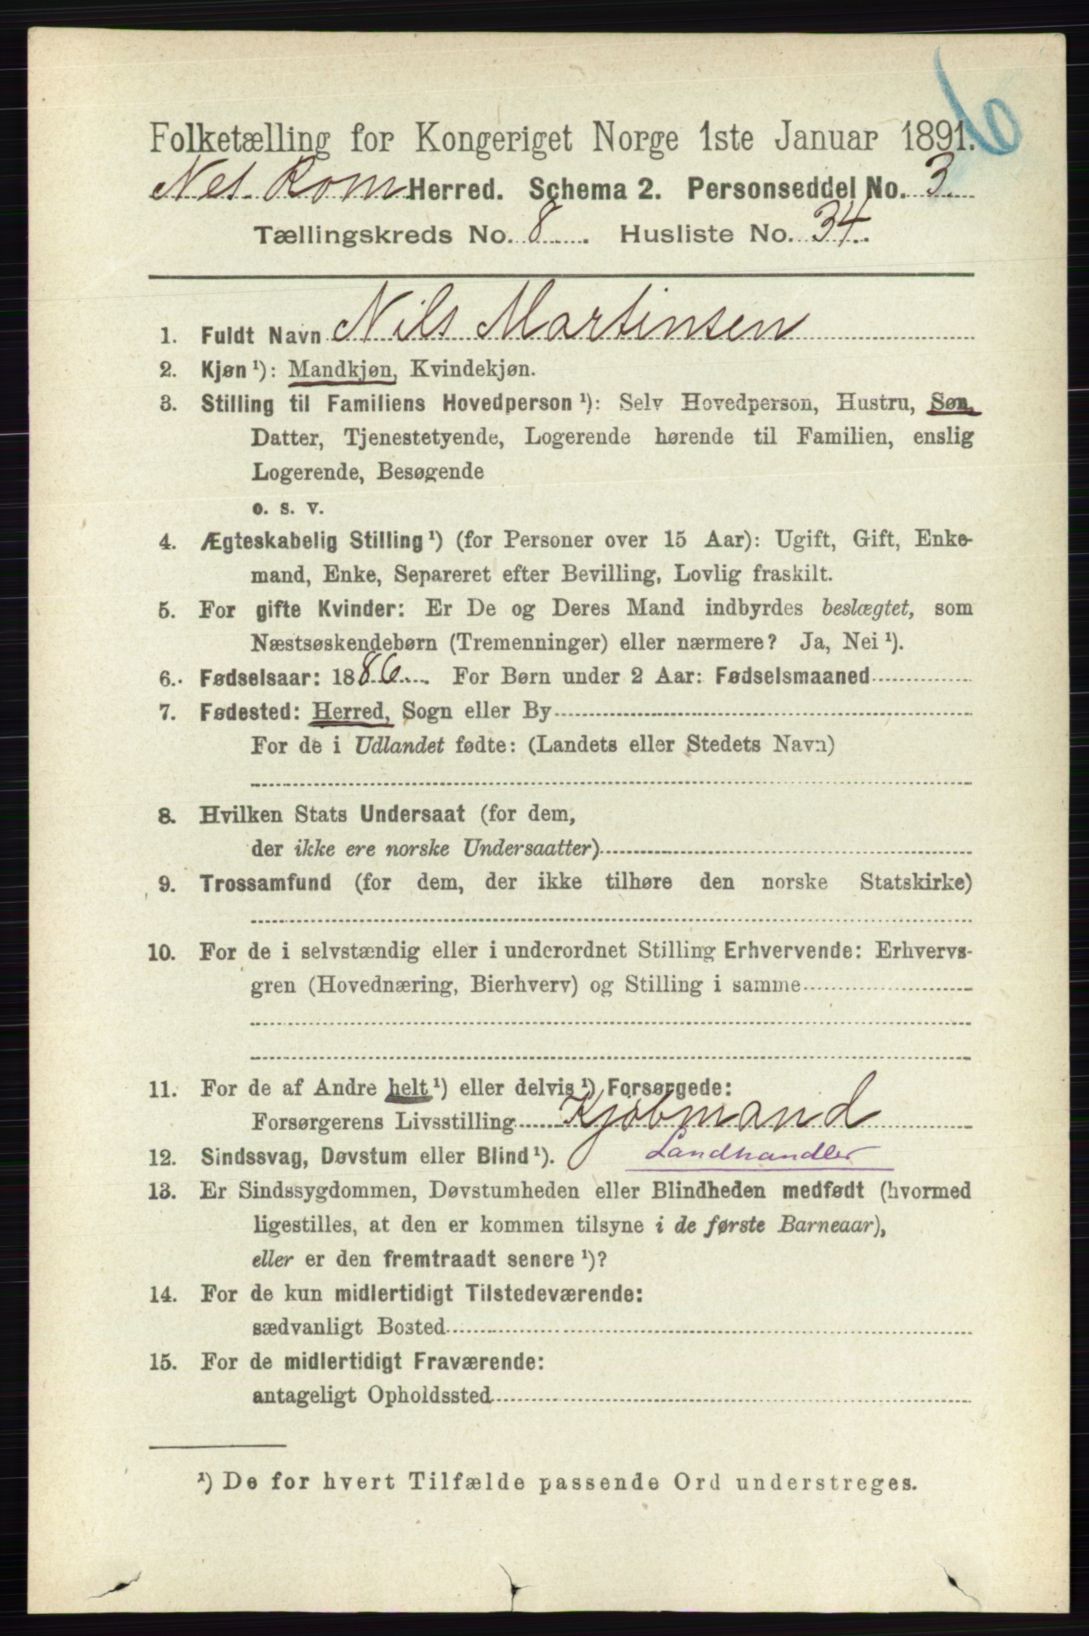 6
Folketælling for Kongeriget Norge 1ste Januar 1891.
Nes. Rom Herred. Schema 2. Personseddel No. 3.
Tællingskreds No. 8. Husliste No. 34.
1. Fuldt Navn Nils Martinsen
2. Kjøn ¹): Mandkjøn, Kvindekjøn.
3. Stilling til Familiens Hovedperson ¹): Selv Hovedperson, Hustru, Søn,
Datter, Tjenestetyende, Logerende hørende til Familien, enslig
Logerende, Besøgende
o. s. v.
4. Ægteskabelig Stilling ¹) (for Personer over 15 Aar): Ugift, Gift, Enke-
mand, Enke, Separeret efter Bevilling, Lovlig fraskilt.
5. For gifte Kvinder: Er De og Deres Mand indbyrdes beslægtet, som
Næstsøskendebørn (Tremenninger) eller nærmere? Ja, Nei ¹).
6. Fødselsaar: 1886. For Børn under 2 Aar: Fødselsmaaned
7. Fødested: Herred, Sogn eller By
For de i Udlandet fødte: (Landets eller Stedets Navn)
8. Hvilken Stats Undersaat (for dem,
der ikke ere norske Undersaatter)
9. Trossamfund (for dem, der ikke tilhøre den norske Statskirke)
10. For de i selvstændig eller i underordnet Stilling Erhvervende: Erhvervs-
gren (Hovednæring, Bierhverv) og Stilling i samme
11. For de af Andre helt ¹) eller delvis ¹) Forsørgede:
Forsørgerens Livsstilling Kjøbmand
12. Sindssvag, Døvstum eller Blind ¹). Landhandler
13. Er Sindssygdommen, Døvstumheden eller Blindheden medfødt (hvormed
ligestilles, at den er kommen tilsyne i de første Barneaar),
eller er den fremtraadt senere ¹)?
14. For de kun midlertidigt Tilstedeværende:
sædvanligt Bosted
15. For de midlertidigt Fraværende:
antageligt Opholdssted
¹) De for hvert Tilfælde passende Ord understreges.